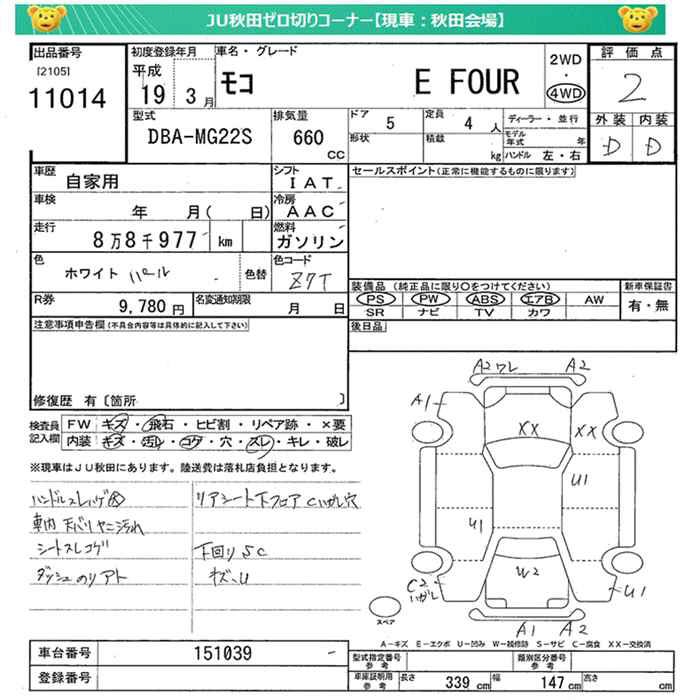 JU秋田ゼロ切りコーナー【現車：秋田会場】
出品番号
[2105]
11014
初度登録年月
平成
19 3月
車名・グレード
モコ E FOUR
2WD
・
4WD
評価点
2
外装 内装
D D
型式
DBA-MG22S
排気量
660
CC
ドア 5
形状
定員 4 人
積載 kg
ディーラー・並行
モデル年式 年
ハンドル 左・右
車歴
自家用
シフト
IAT
車検
年 月( 日)
冷房
AAC
走行
8万8千977 km
燃料
ガソリン
色
ホワイト パール
色替
色コード
Z7T
R券
9,780 円
名変通知期限
月 日
セールスポイント(正常に機能するものに限ります)
装備品 (純正品に限り○をつけてください)
PS PW ABS エアB AW
SR ナビ TV カワ
新車保証書
有・無
後日品
注意事項申告欄(不具合内容等は具体的に記入して下さい)
修復歴 有〔箇所 〕
検査員
記入欄
FW キズ・飛石・ヒビ割・リペア跡・×要
内装 キズ・汚レ・コゲ・穴・スレ・キレ・破レ
※現車はJU秋田にあります。陸送費は落札店負担となります。
ハンドルスレハゲ大
車内 天バリヤニ汚れ
シートスレコゲ
ダッシュのリアト
リアシート下フロア Cハガレ穴
下回り S C
キズ、U
A2 ワレ A2
A1
XX XX
U1
U1
W2
C2
ハガレ
U1
A1 A2
スペア
A－キズ E－エクボ U－凹み W－補修跡 S－サビ C－腐食 XX－交換済
車台番号 151039
登録番号
型式指定番号
参考
類別区分番号
参考
車庫証明用
参考
長さ 339 cm 幅 147 cm 高さ cm